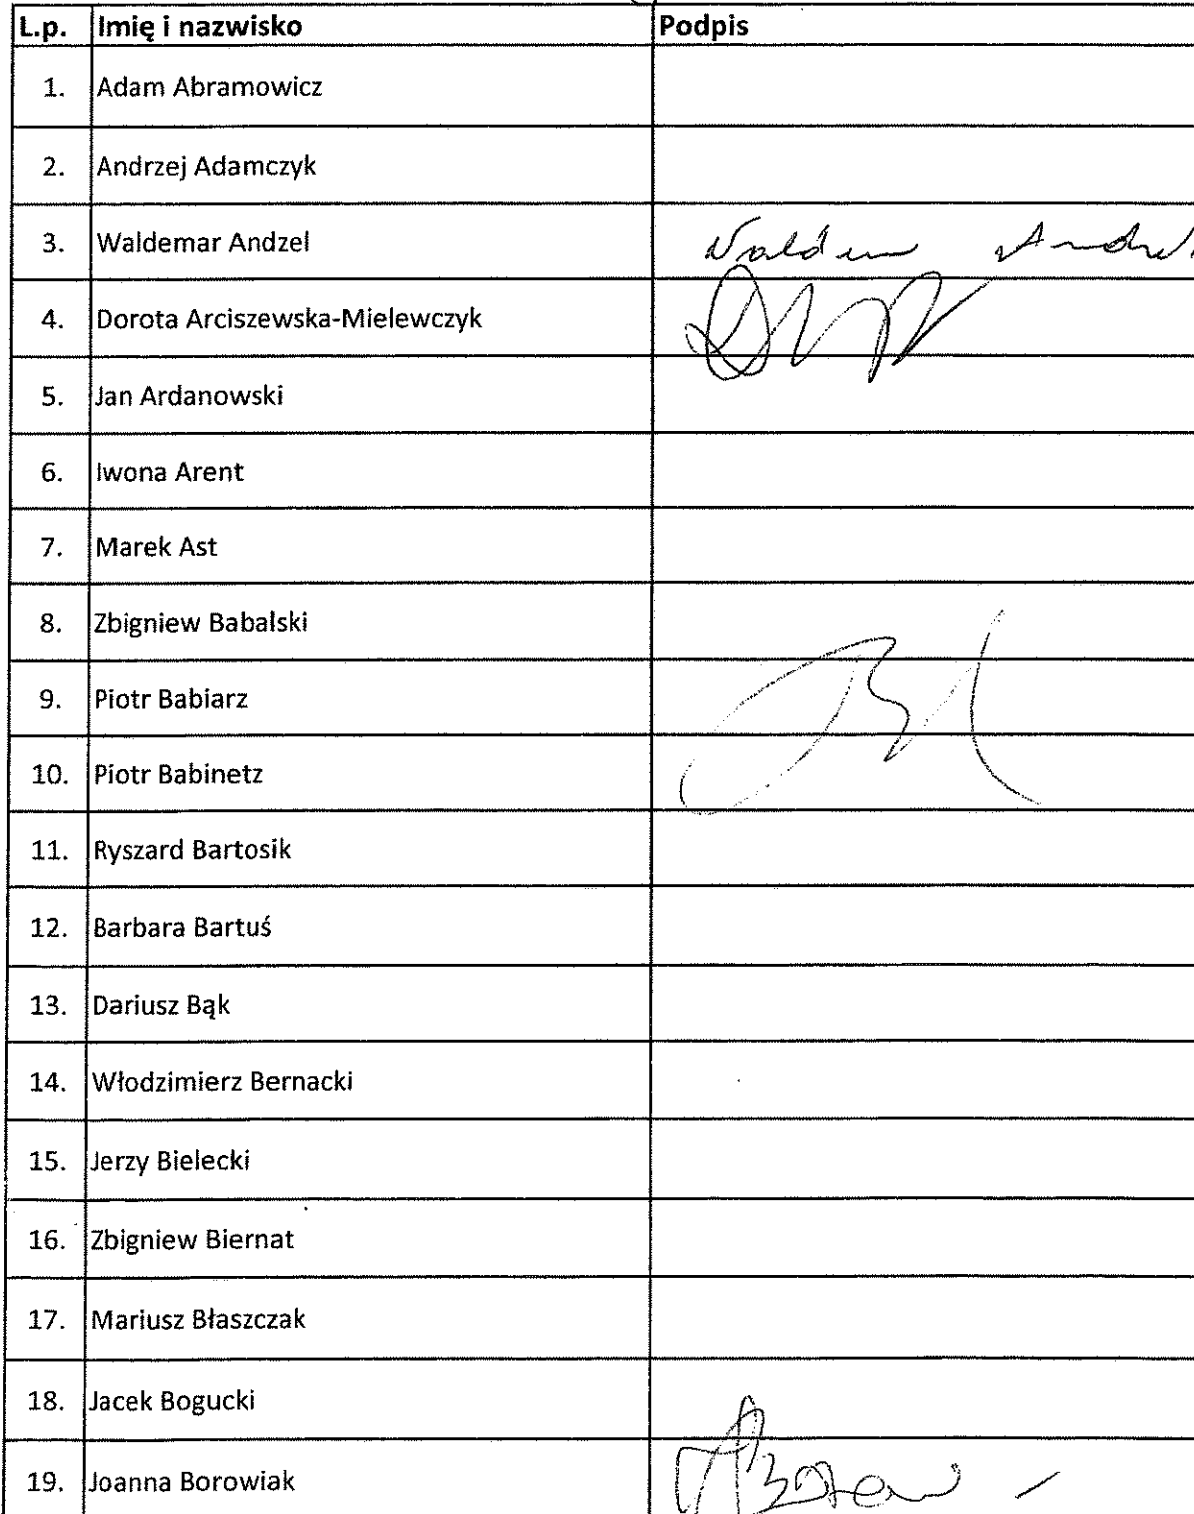 L.p. Imię i nazwisko Podpis
1. Adam Abramowicz
2. Andrzej Adamczyk
3. Waldemar Andzel
4. Dorota Arciszewska-Mielewczyk
5. Jan Ardanowski
6. Iwona Arent
7. Marek Ast
8. Zbigniew Babalski
9. Piotr Babiarz
10. Piotr Babinetz
11. Ryszard Bartosik
12. Barbara Bartuś
13. Dariusz Bąk
14. Włodzimierz Bernacki
15. Jerzy Bielecki
16. Zbigniew Biernat
17. Mariusz Błaszczak
18. Jacek Bogucki
19. Joanna Borowiak